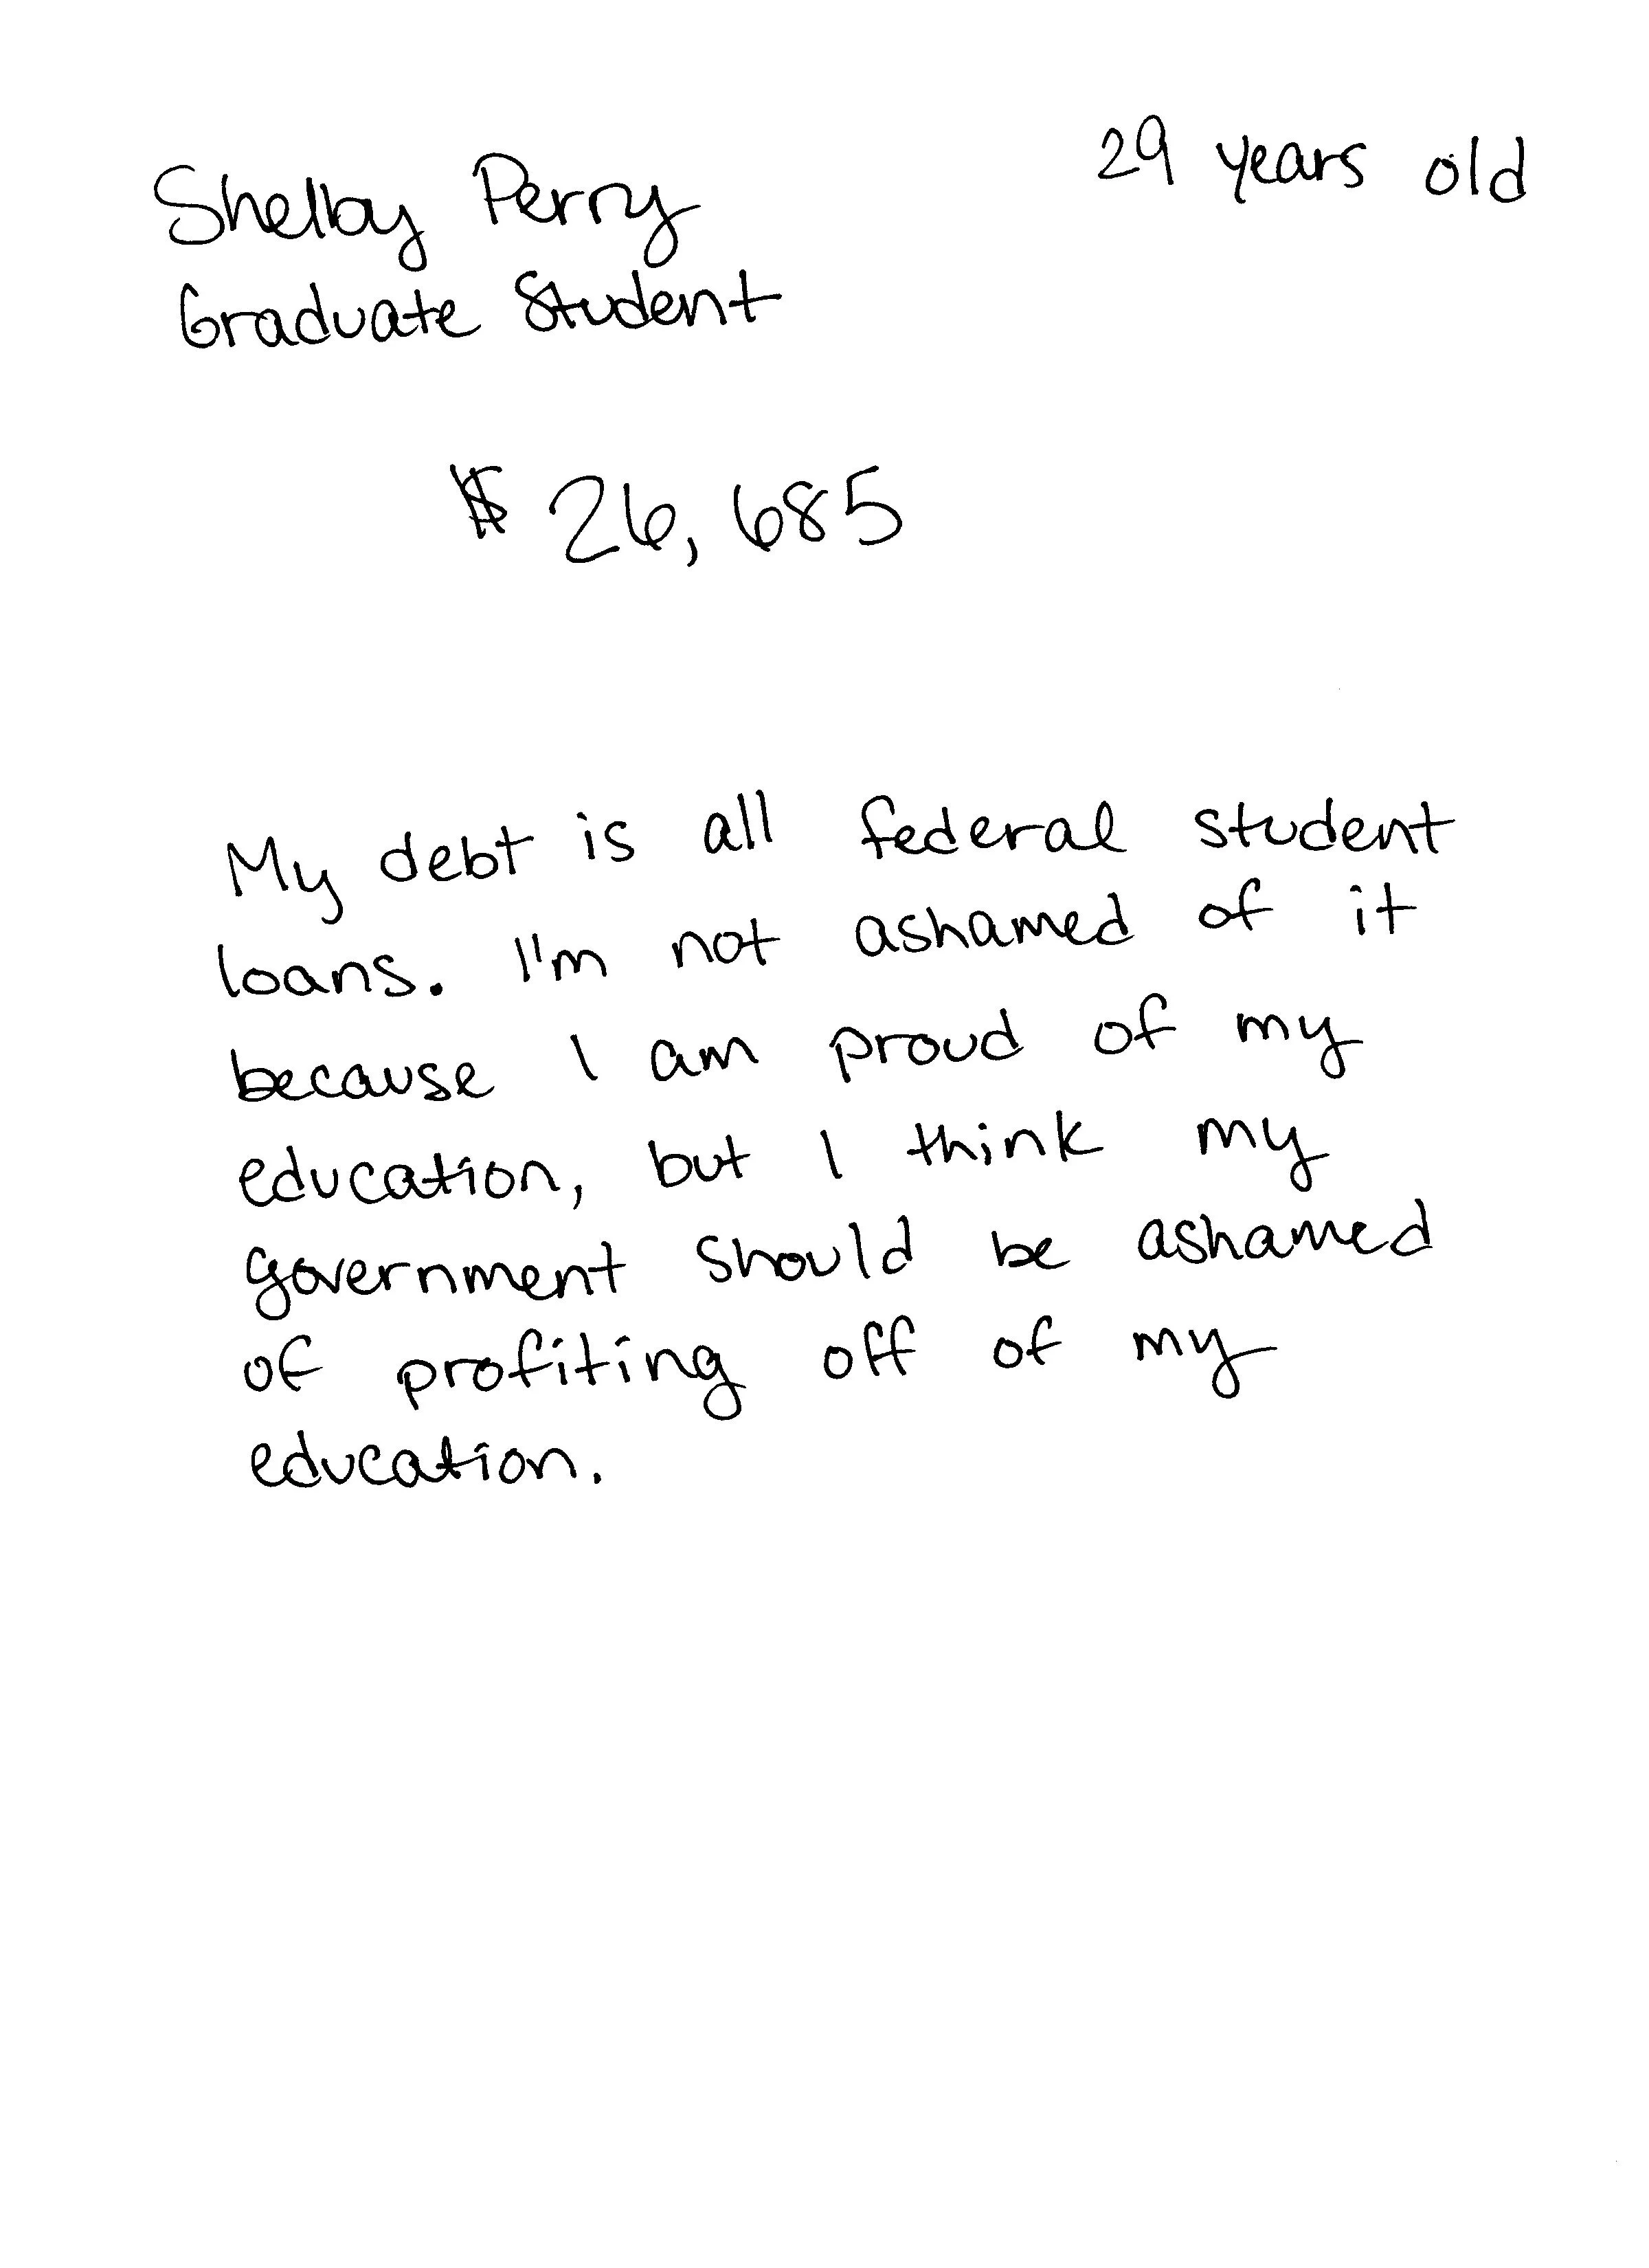 Shelby Perry
29 years old
Graduate Student
$ 26,685
My debt is all federal student
loans. I'm not ashamed of it
because I am proud of my
education, but I think my
government should be ashamed
of profiting off of my
education.